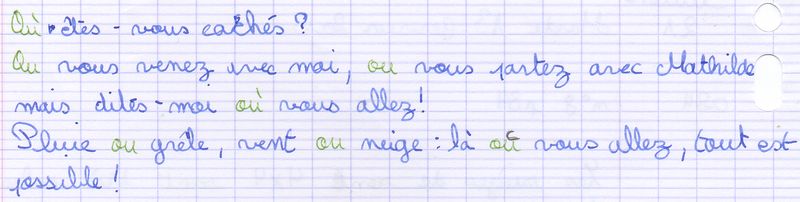 Où êtes-vous cachés ?
Ou vous venez avec moi, ou vous partez avec Mathilde
mais dites-moi où vous allez !
Pluie ou grêle, vent ou neige : là où vous allez, tout est
possible !